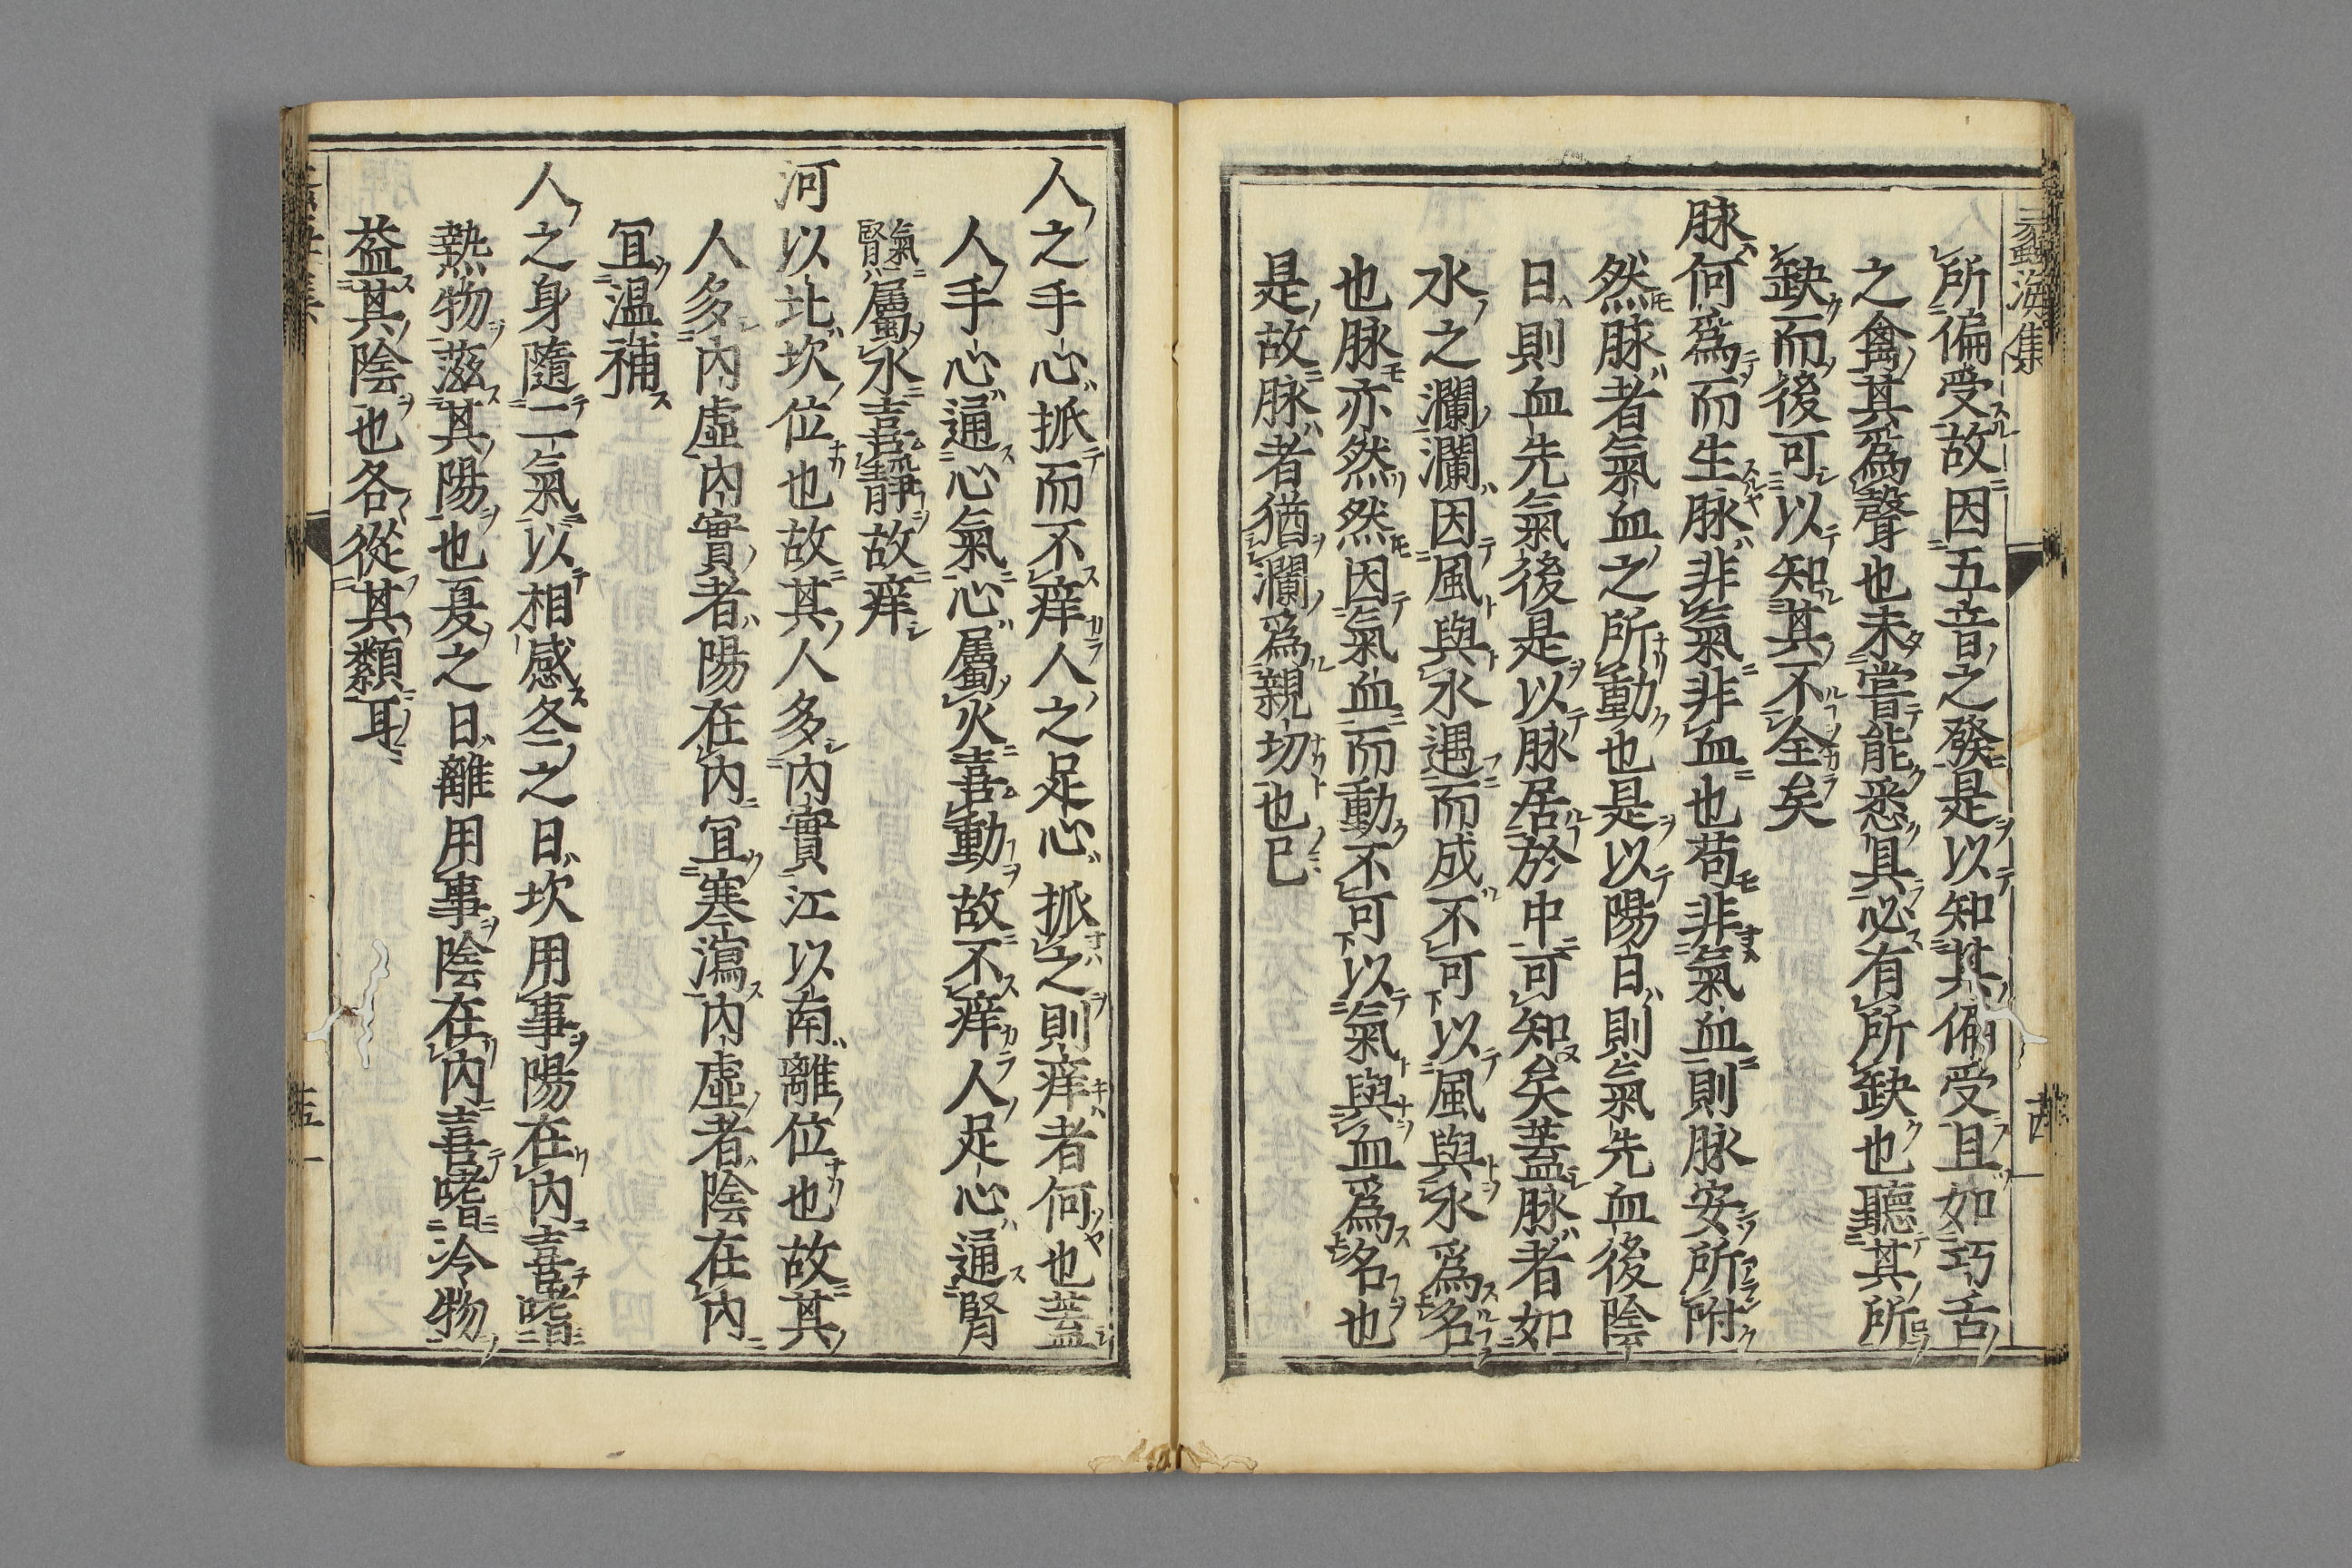 蠡海集
所偏受故因五音之發是以知其偏受且如巧舌
之禽其爲聲也未嘗能悉具必有所缺也聽其所
缺而後可以知其不全矣
脉何爲而生脉非氣非血也苟非氣血則脉安所附
然脉者氣血之所動也是以陽日則氣先血後陰
日則血先氣後是以脉居於中可知矣蓋脉者如
水之瀾瀾因風與水遇而成不可以風與水爲名
也脉亦然然因氣血而動不可以氣與血爲名也
是故脉者猶瀾爲親切也已
人之手心抓而不痒人之足心抓之則痒者何也蓋
人手心通心氣心屬火喜動故不痒人足心通腎
氣腎屬水喜靜故痒
河以北坎位也故其人多內實江以南離位也故其
人多內虛內實者陽在內宜塞瀉內虛者陰在內
宜温補
人之身隨二氣以相感冬之日坎用事陽在內喜嗜
熱物滋其陽也夏之日離用事陰在內喜嗜冷物
益其陰也各從其類耳